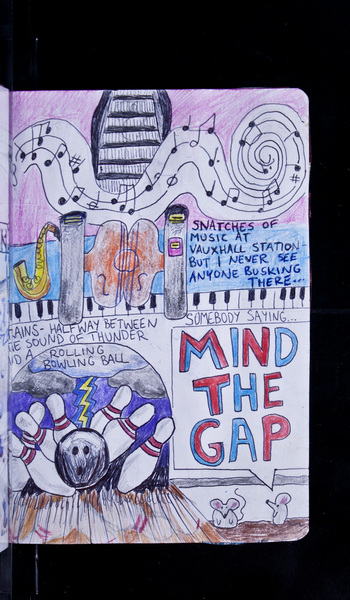 SNATCHES OF
MUSIC AT
VAUXHALL STATION
BUT I NEVER SEE
ANYONE BUSKING
THERE...
TAINS - HALFWAY BETWEEN
THE SOUND OF THUNDER
ND A ROLLING
BOWLING BALL
SOMEBODY SAYING...
MIND
THE
GAP